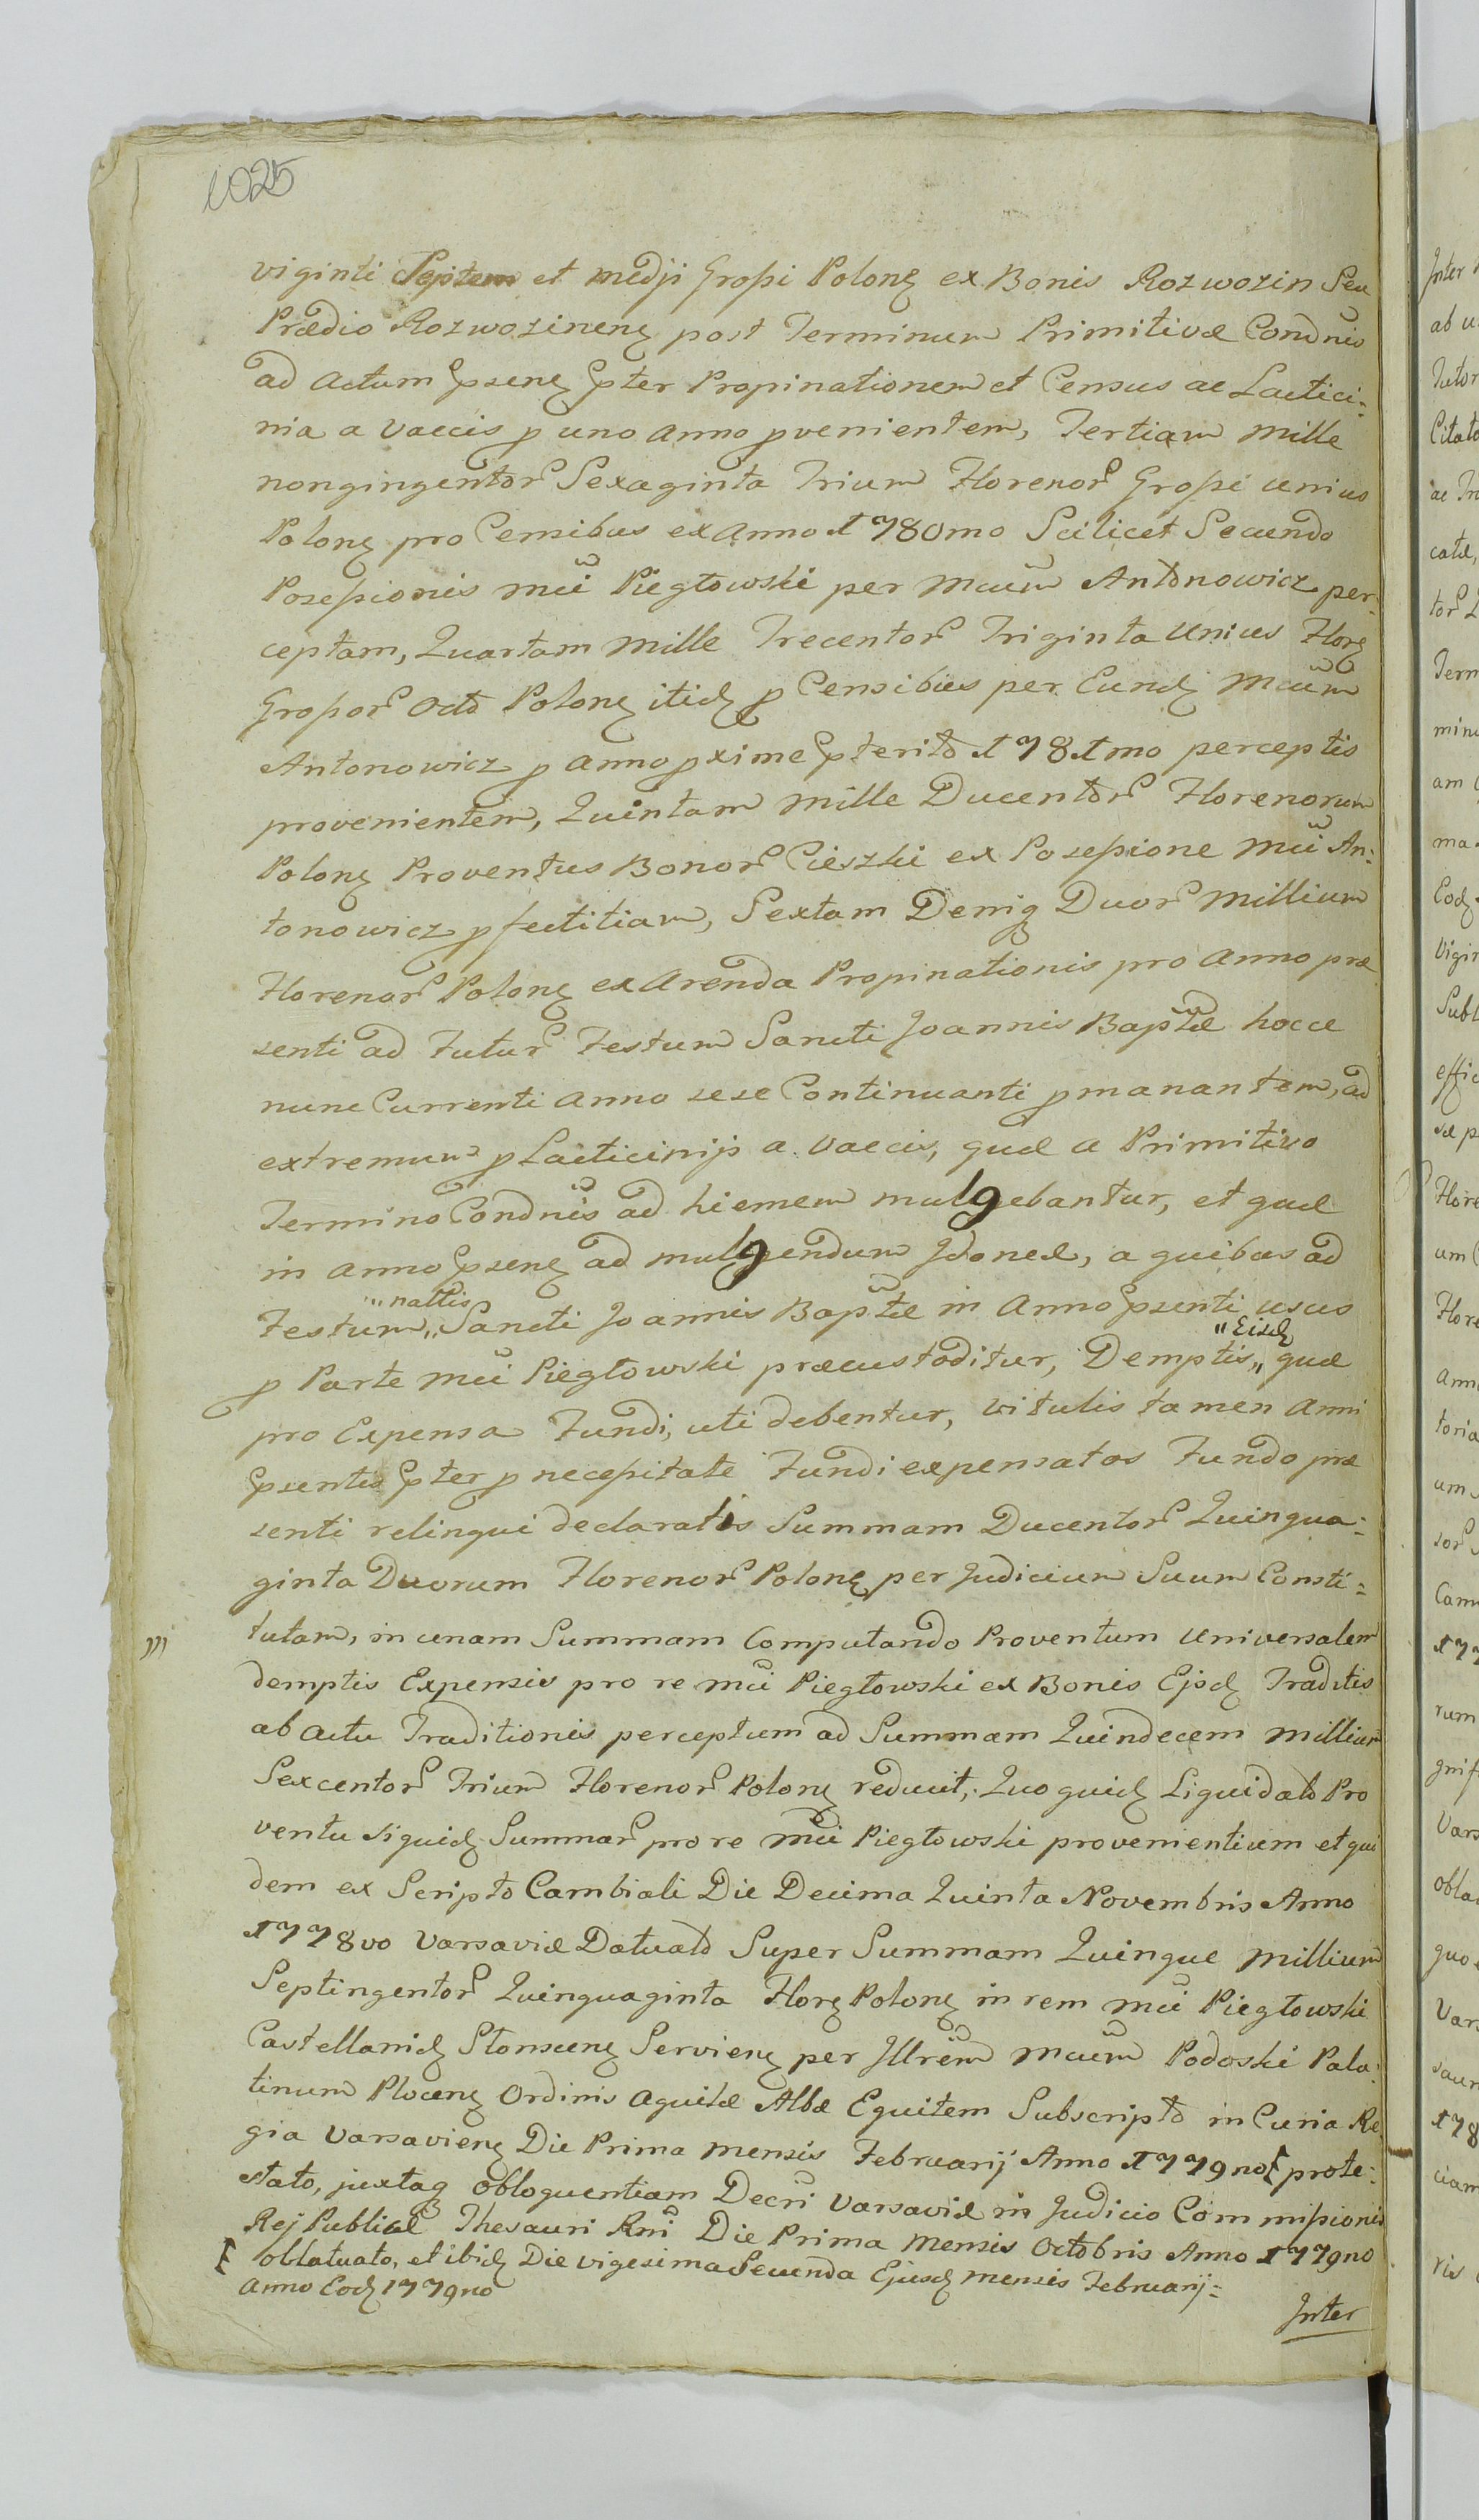 1025
viginti Septem et medji Grossi Polonꝫ ex Bonis Rozwozin Seu
Prædio Rozwozinenꝫ post Terminum Primitivæ Condnis
ad Actum pꝛsenꝫ pꝛter Propinationem et Census ac Lactici-
nia a Vaccis ꝑ uno Anno ꝓvenientem, Tertiam Mille
nongingentor Sexaginta Trium Florenor Grossi unius
Polonꝫ pro Censibus ex Anno 1780mo Scilicet Secundo
Posessionis Mci Piegłowski per Mcum Antonowicz per-
ceptam, Quartam Mille Trecentor Triginta Unius Florꝫ
Grossor Octo Polonꝫ itidꝫ ꝓ Censibus per Eundꝫ Mcum
Antonowicz ꝓ Anno ꝓxime pꝛterito 1781mo perceptis
provenientem, Quintam Mille Ducentor Florenorum
Polonꝫ Proventus Bonor Cieszki ex Posessione Mci An-
tonowicz ꝓfectitiam, Sextam Deniqꝫ Duor Millium
Florenor Polonꝫ ex Arenda Propinationis pro Anno præ
senti ad Futur Festum Sancti Joannis Baptæ hocce
nunc Currenti Anno sese Continuanti ꝓmanantem, ad
extremum ꝓ Lacticinijs a Vaccis, quæ a Primitivo
Termino Condnis ad hiemem mulgebantur, et quæ
in Anno pꝛsenꝫ ad mulgendum Jdoneæ, a quibus ad
"nattis
Festum" Sancti Joannis Baptæ in Anno pꝛsenti usus
"Eisdꝫ
ꝓ Parte Mci Piegłowski præcustoditur, Demptis" quæ
pro Expensa Fundi, uti debentur, vitulis tamen Anni
pꝛsentis pꝛter ꝓ necessitate Fundi expensatos Fundo præ
senti relinqui declaratis Summam Ducentor Quinqua-
ginta Duorum Florenor Polonꝫ per Judicium Suum Consti-
tutam, in unam Summam Computando Proventum Universalem
demptis Expensis pro re Mci Piegłowski ex Bonis Ejsdꝫ Traditis
ab Actu Traditionis perceptum ad Summam Quindecem Millium
Sexcentor Trium Florenor Polonꝫ reducit, Quo quidꝫ Liquidato Pro
ventu siquidꝫ Summar pro re Mci Piegłowski provenientium et qui
dem ex Scripto Cambiali Die Decima Quinta Novembris Anno
1778vo Varsaviæ Datuato Super Summam Quinque Millium
Septingentor Quinquaginta Florꝫ Polonꝫ in rem Mci Piegłowski
Castellanidꝫ Słonscenꝫ Servienꝫ per Jllrem Mcum Podoski Pala-
tinum Plocenꝫ Ordinis Aquilæ Albæ Equitem Subscripto in Curia Re
gia Varsavienꝫ Die Prima Mensis Februarij Anno 1779no [ prote-
stato, juxtaqꝫ obloquentiam Decri Varsaviæ in Judicio Commissionis
Rej Publicæ Thesauri Rni Die Prima Mensis Octobris Anno 1779no
[ oblatuato, et ibidꝫ Die vigesima Secunda Ejusdꝫ Mensis Februarij-
Anno Eodꝫ 1779no
Inter